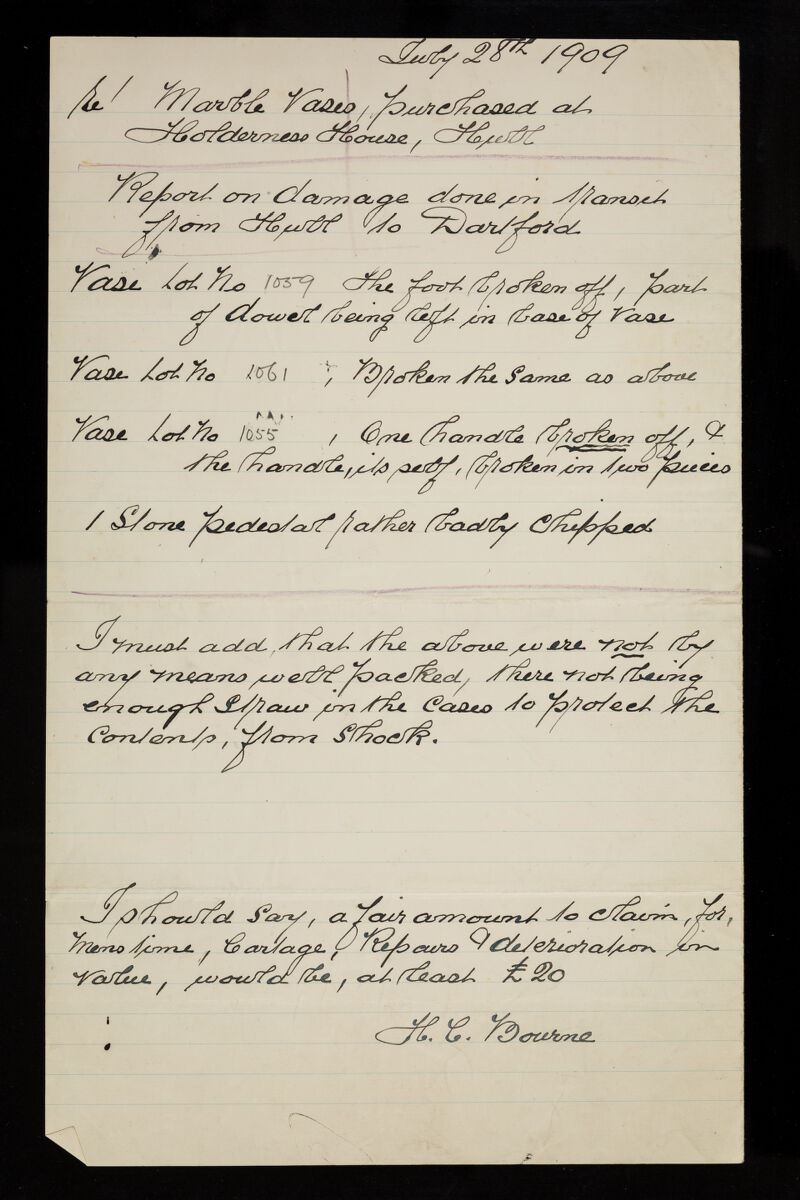 July 28th 1909
Re/ Marble Vases, purchased at
Holderness House, Hull
Report on damage done in transit
from Hull to Dartford
Vase Lot No 1059 The foot broken off, part
of dowel being left in base of Vase
Vase Lot No 1061 , Broken the same as above
Vase Lot No 1055 , One handle broken off, &
the handle, its self, broken in two pieces
1 Stone pedestal rather badly chipped
I must add, that the above were not by
any means well packed, there not being
enough straw in the cases to protect the
contents, from shock.
I should say, a fair amount to claim, for,
mens time, Cartage, Repairs & deterioration in
value, would be, at least £20
H. C. Bourne